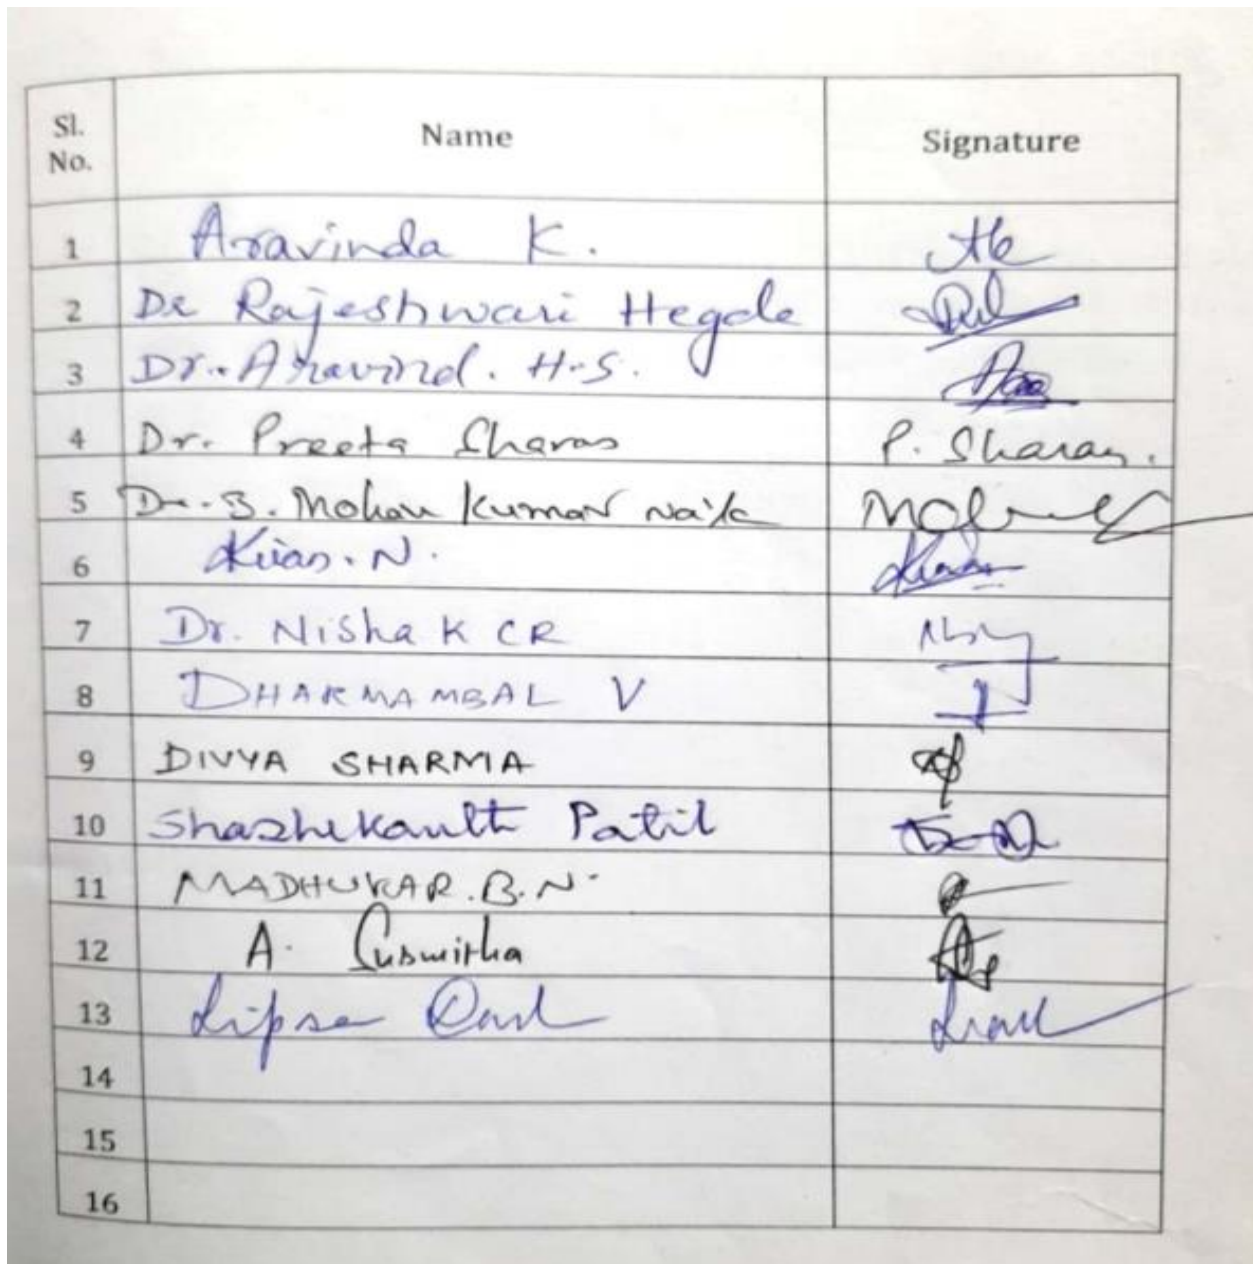 Sl. No. Name Signature
1 Aravinda K.
2 Dr Rajeshwari Hegde
3 Dr. Aravind. H.S.
4 Dr. Preeta Sharan P. Sharan.
5 Dr. B. Mohan Kumar Naik
6 Kiran. N.
7 Dr. Nisha K CR
8 DHARMAMBAL V
9 DIVYA SHARMA
10 Shashikanth Patil
11 MADHUKAR. B. N.
12 A. Susmitha
13 Lipsa Dash
14
15
16